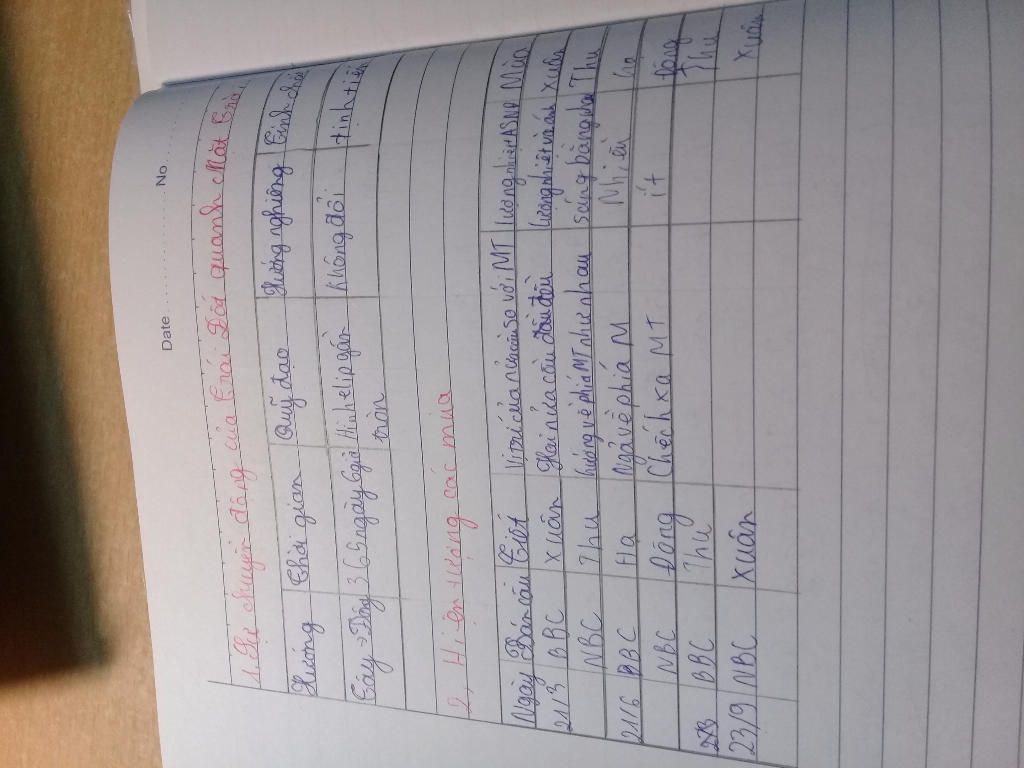 Date No
1. Sự chuyển động của Trái Đất quanh Mặt Trời
Hướng Thời gian Quỹ đạo Hướng nghiêng Tính chất
Tây → Đông 365 ngày 6 giờ Hình elip gần Không đổi tịnh tiến
tròn
2, Hiện tượng các mùa
Ngày Bán cầu Tiết Vị trí của nửa cầu so với MT Lượng nhiệt ASNP Mùa
21/3 BBC Xuân Hai nửa cầu đều đều Lượng nhiệt và ánh Xuân
NBC Thu hướng về phía MT như nhau sáng bằng nhau Thu
21/6 BBC Hạ Ngả về phía M Nhiều Hạ
NBC Đông Chếch xa MT ít Đông
23 BBC Thu Thu
23/9 NBC Xuân Xuân